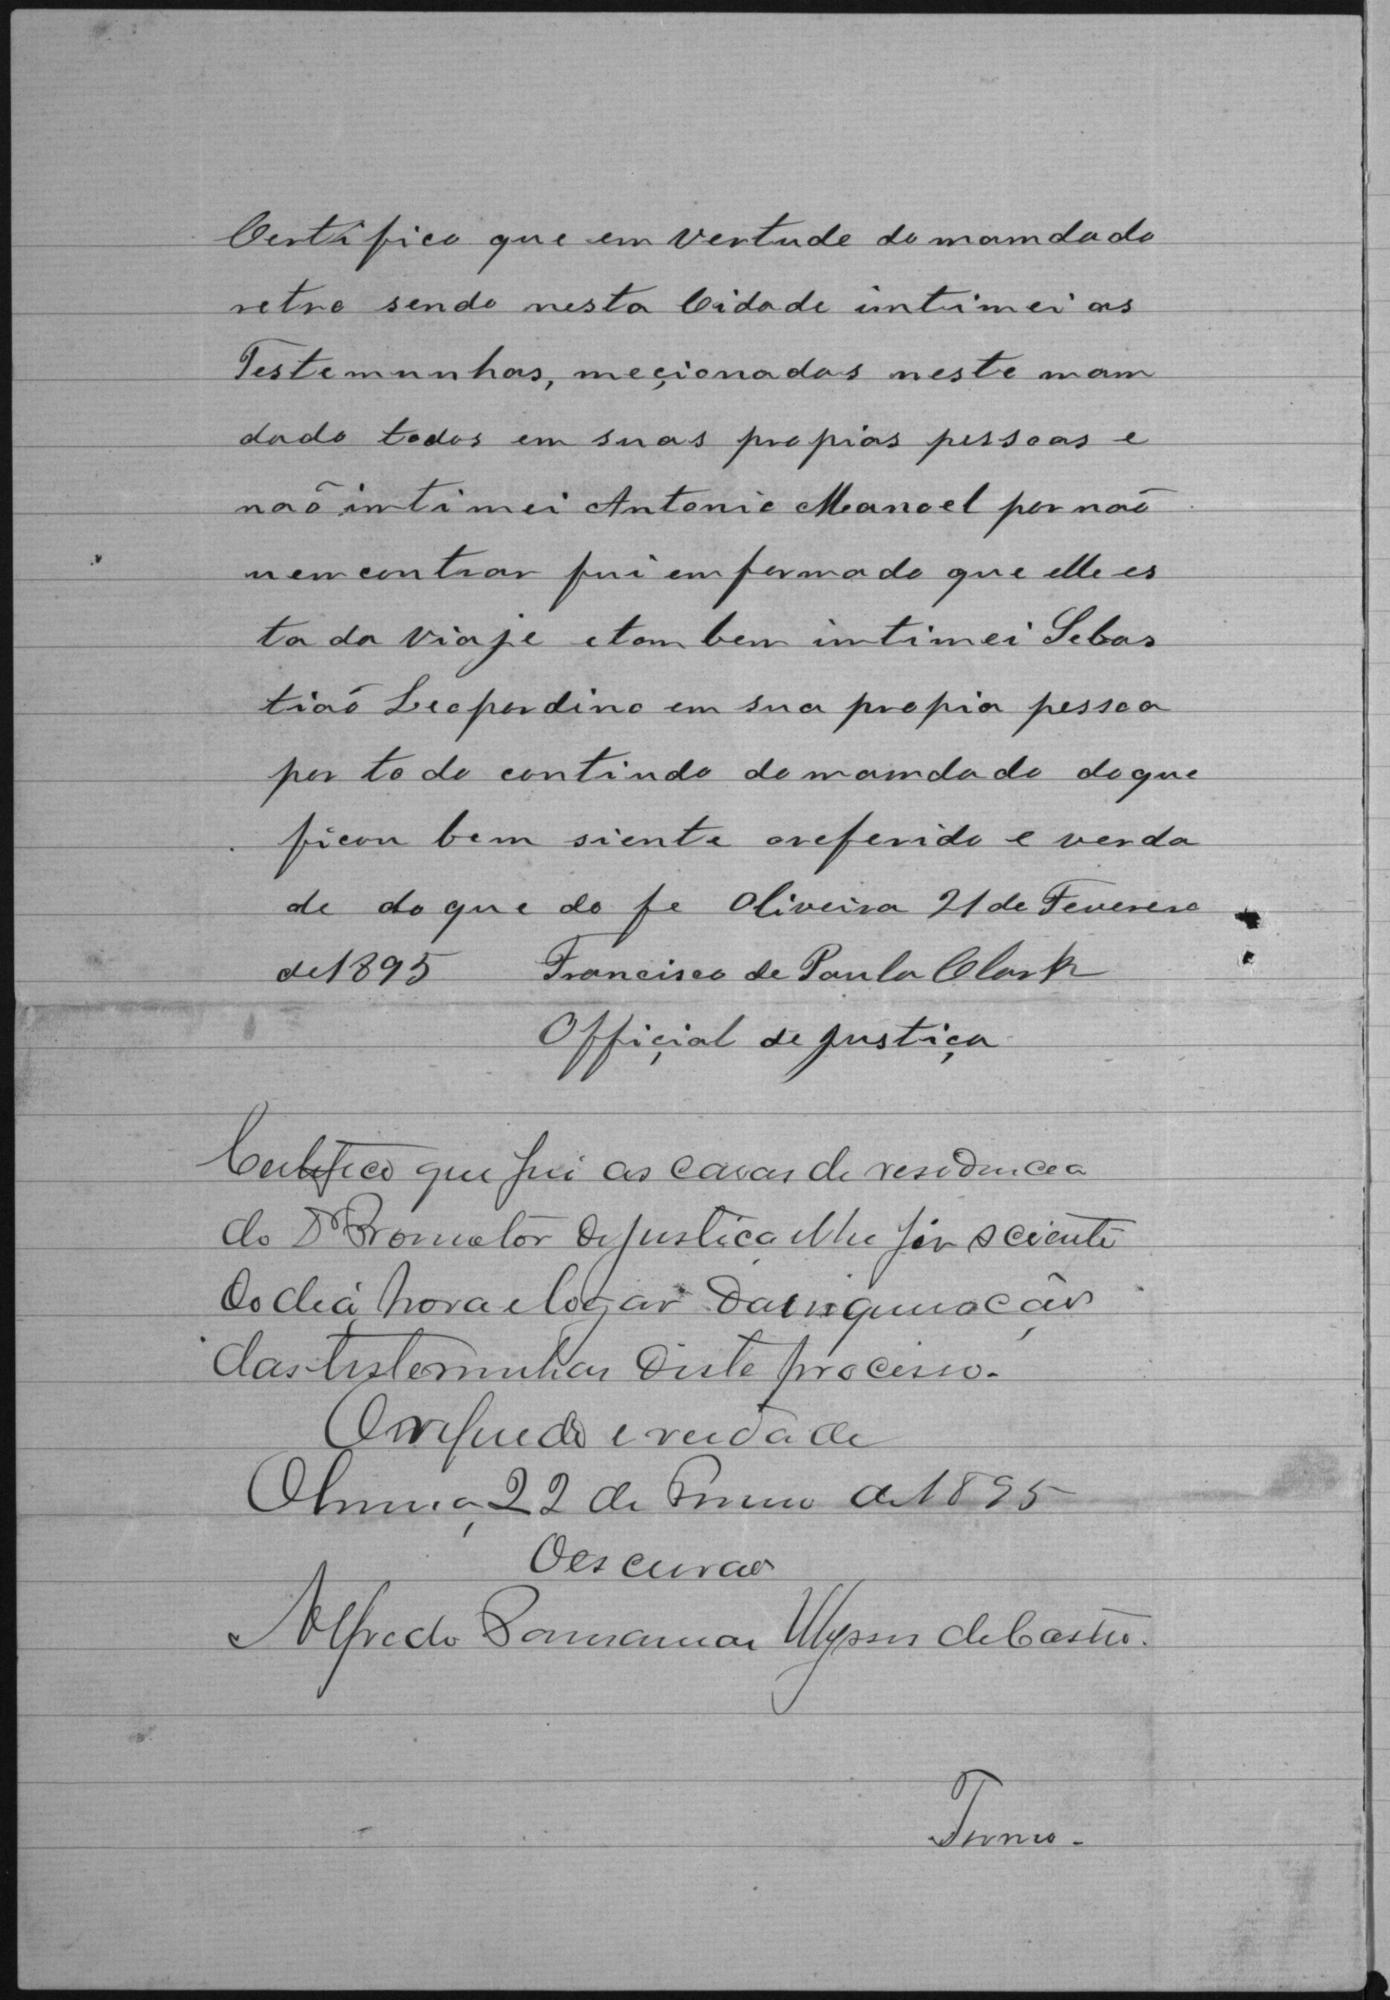 Certifico que em vertude do mamdado
retro sendo nesta Cidade imtimei as
Testemunhas, meçionadas neste mam
dado todos em suas propias pessoas e
naõ imtimei Antonio Manoel por naõ
u emcontrar fui emformado que elle es
ta da viaje e tambem imtimei Sebas
tiaõ Leopordino em sua propia pessoa
por todo contiudo do mamdado doque
ficou bem siente oreferido e verda
de do que do fe Oliveira 21 de Feverero
de 1895 Francisco de Paula Clark
Offiçial de justiça
Certifico que fui as casas de residencea
do Dr Promotor de justiça e lhe fis sciente
do dia, hora e logar da inquiração
das testemunhas deste processo.
O referido e verdade
Oliveira, 22 de de 1895
O escrivão
Alfredo Ulysses de Castro.
Termo.